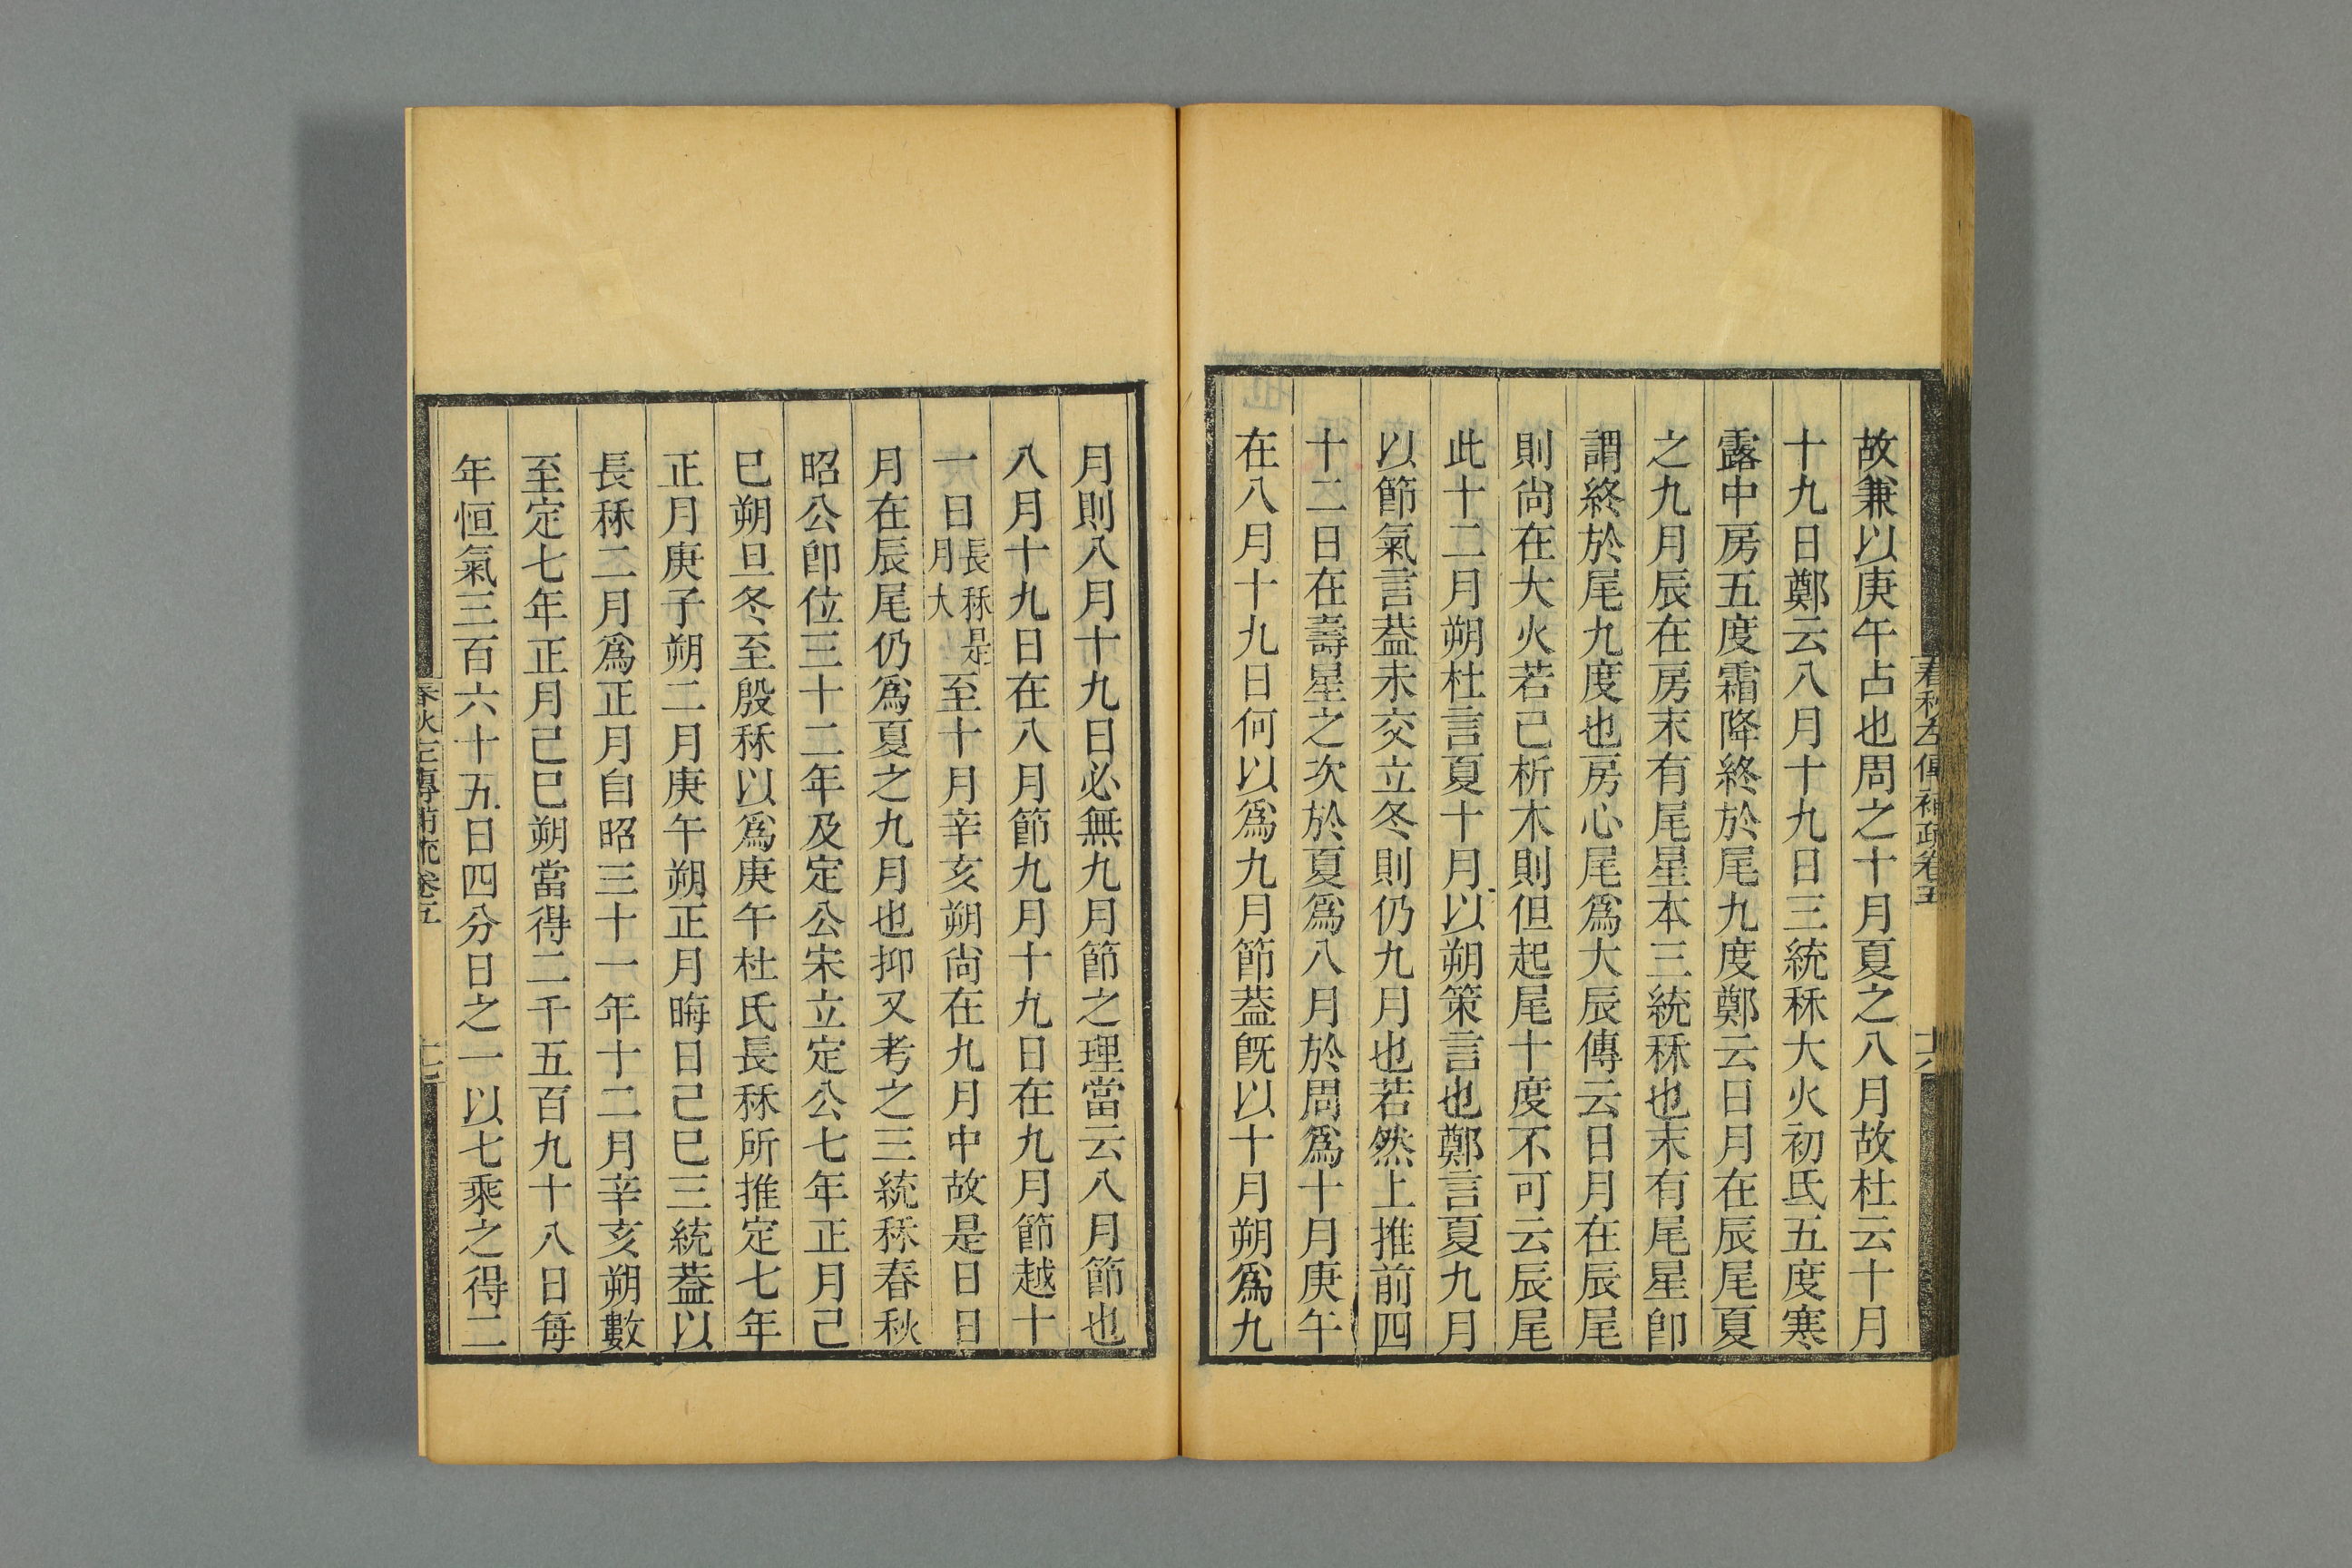 春秋左傳補疏卷五
十六
故兼以庚午占也周之十月夏之八月故杜云十月
十九日鄭云八月十九日三統秝大火初氐五度寒
露中房五度霜降終於尾九度鄭云日月在辰尾夏
之九月辰在房末有尾星本三統秝也末有尾星卽
謂終於尾九度也房心尾爲大辰傳云日月在辰尾
則尙在大火若已析木則但起尾十度不可云辰尾
此十二月朔杜言夏十月以朔策言也鄭言夏九月
以節氣言葢未交立冬則仍九月也若然上推前四
十二日在壽星之次於夏爲八月於周爲十月庚午
在八月十九日何以爲九月節葢旣以十月朔爲九
月則八月十九日必無九月節之理當云八月節也
八月十九日在八月節九月十九日在九月節越十
一日長秝是月大至十月辛亥朔尙在九月中故是日日
月在辰尾仍爲夏之九月也抑又考之三統秝春秋
昭公卽位三十二年及定公宋立定公七年正月己
巳朔旦冬至殷秝以爲庚午杜氏長秝所推定七年
正月庚子朔二月庚午朔正月晦日己巳三統葢以
長秝二月爲正月自昭三十一年十二月辛亥朔數
至定七年正月己巳朔當得二千五百九十八日每
年恒氣三百六十五日四分日之一以七乘之得二
春秋左傳補疏卷五
十七